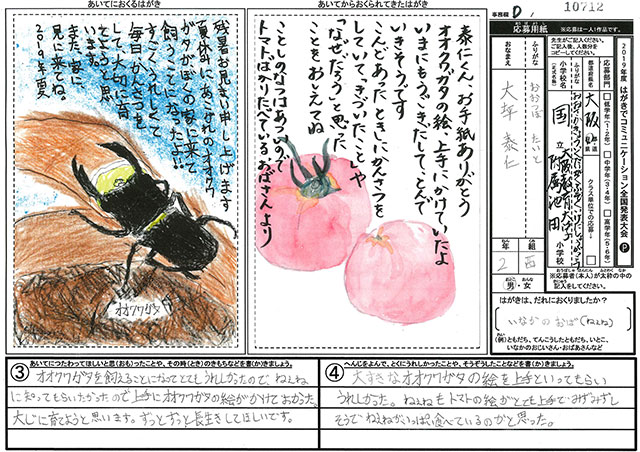 あいてにおくるはがき
残暑お見まい申し上げます
夏休みに、あこがれのオオクワ
ガタがぼくの家に来て
飼うことになったよ!!
すごくうれしくて
毎日かんさつを
して、大切に育
てようと思
います。
また、家に
見に来てね。
2019年夏
オオクワガタ
あいてからおくられてきたはがき
泰仁くん、お手紙ありがとう
オオクワガタの絵、上手にかけていたよ
いまにもうごきだして、とんで
いきそうです
こんどあったときにかんさつを
していて、きづいたことや
「なぜだろう」と思った
ことをおしえてね
ことしのなつはあついので
トマトばかりたべているおばさんより
事務欄 D
10712
応募用紙
※応募は一人1作品です。
先生がご記入ください。
ご記入後、人数分を
コピーしてください。
2019年度 はがきでコミュニケーション全国発表大会 P
応募部門
低学年(1・2年)
中学年(3・4年)
高学年(5・6年)
都道府県名
大阪
都道府県
クラス単位での応募
ふりがな
小学校名
(正式名称)
国立
大阪教育大学
附属池田
小学校
ふりがな
おなまえ
おおつぼ たいと
大坪 泰仁
年 組
2 西
男・女
※応募者(本人)が太枠の中の
記入をしてください。
はがきは、だれにおくりましたか?
いなかのおば(ねぇね)
(例)ともだち、てんこうしたともだち、いとこ、
いなかのおじいさん・おばあさんなど
③
あいてにつたわってほしいと思(おも)ったことや、その時(とき)のきもちなどを書(か)きましょう。
オオクワガタを飼えることになってとてもうれしかったので、ねぇね
に知ってもらいたかったので上手にオオクワガタの絵がかけてよかった。
大じに育てようと思います。ずっとずっと長生きしてほしいです。
④
へんじをよんで、とくにうれしかったことや、そうぞうしたことなどを書(か)きましょう。
大すきなオオクワガタの絵を上手といってもらい
うれしかった。ねぇねもトマトの絵がとても上手で、みずみずし
そうでねぇねがいっぱい食べているのかと思った。